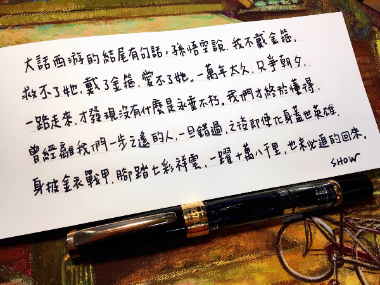 大話西游的結尾有句話，孫悟空說，我不戴金箍，
救不了她，戴了金箍，愛不了她。一萬年太久，只爭朝夕
一路走來，才發現沒有什麼是永垂不朽，我們才終於懂得，
曾經離我們一步之遙的人，一旦錯過，之後即使化身蓋世英雄，
身披金衣戰甲，腳踏七彩祥雲，一躍十萬八千里，也未必追的回來。
SHOW